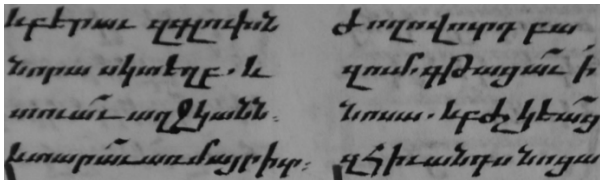 և բերաւ զգլուխն
նորա սկտեղբ. և
տուաւ աղջկանն:
և տարաւ առ մայր իւր:
ժողովուրդ բա
զում. գթացաւ ի
նոսա. և բժշկեաց
զհիւանդս նոցա